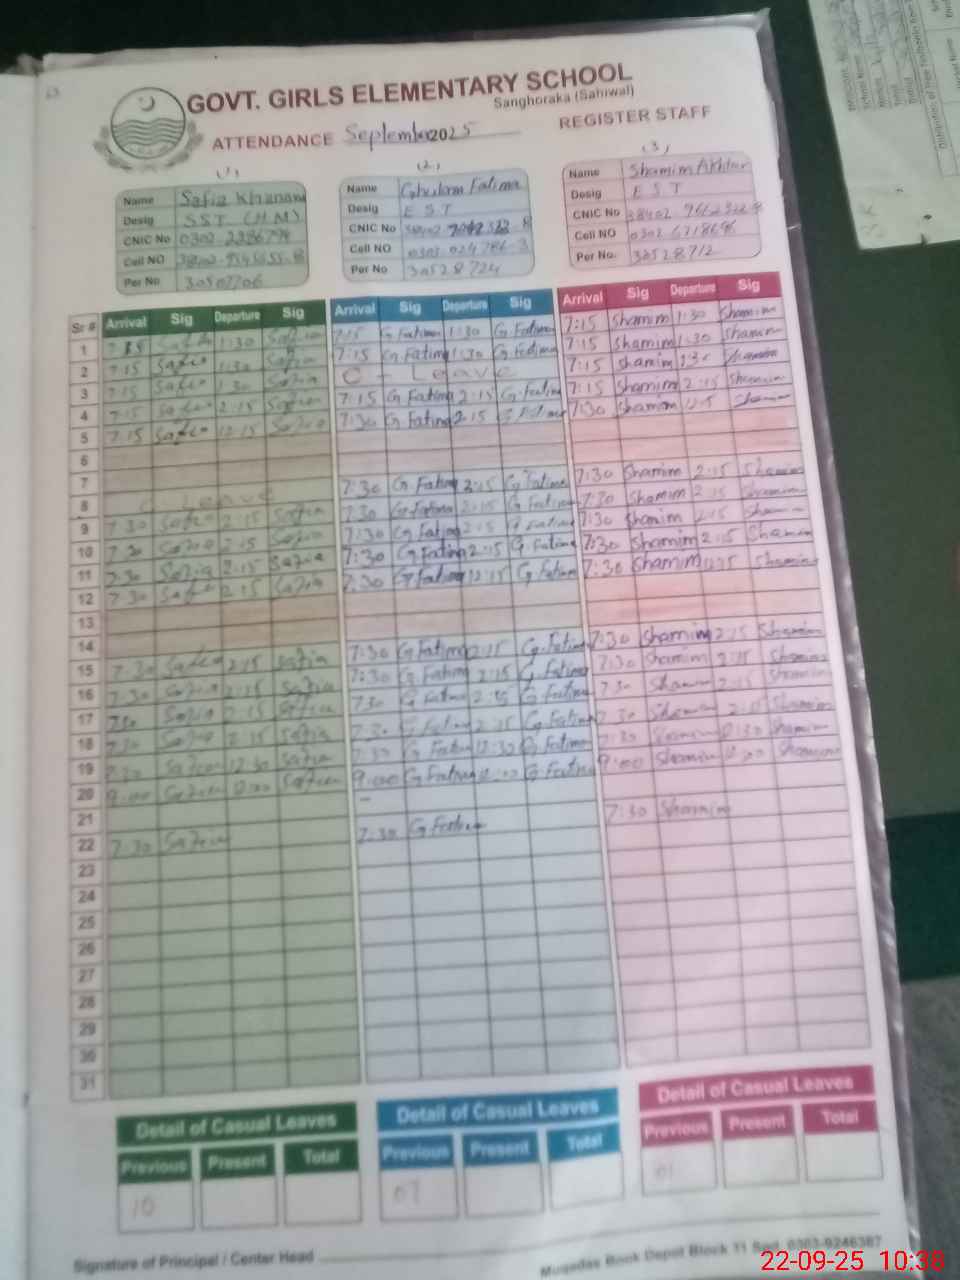 GOVT. GIRLS ELEMENTARY SCHOOL
Sanghoraka (Sahiwal)
ATTENDANCE September 2025 REGISTER STAFF
(1) (2) (3)
Name Safia Khanam Name Ghulam Fatima Name Shamim Akhtar
Desig SST (H.M) Desig E S T Desig E S T
CNIC No CNIC No CNIC No
Cell NO Cell NO Cell NO
Per No 30507706 Per No 30528724 Per No. 30528712
Sr # Arrival Sig Departure Sig Arrival Sig Departure Sig Arrival Sig Departure Sig
1 Safia 1:30 Safia 7:15 G Fatima 1:30 G Fatima 7:15 Shamim 1:30 Shamim
2 7:15 Safia 1:30 Safia 7:15 G Fatima 1:30 G Fatima 7:15 Shamim 1:30 Shamim
3 7:15 Safia 1:30 Safia C - Leave 7:15 Shamim 1:30 Shamim
4 7:15 Safia 2:15 Safia 7:15 G Fatima 2:15 G. Fatima 7:15 Shamim 2:15 Shamim
5 7:15 Safia 12:15 Safia 7:30 G Fatima 2:15 G Fatima 7:30 Shamim 12:15 Shamim
6
7
8 C Leave 7:30 G Fatima 2:15 G Fatima 7:30 Shamim 2:15 Shamim
9 7:30 Safia 2:15 Safia 7:30 G Fatima 2:15 G Fatima 7:30 Shamim 2:15 Shamim
10 7:30 Safia 2:15 Safia 7:30 G Fatima 2:15 G Fatima 7:30 Shamim 2:15 Shamim
11 7:30 Safia 2:15 Safia 7:30 G Fatima 2:15 G Fatima 7:30 Shamim 2:15 Shamim
12 7:30 Safia 2:15 Safia 7:30 G Fatima 12:15 G Fatima 7:30 Shamim 12:15 Shamim
13
14
15 7:30 Safia 2:15 Safia 7:30 G Fatima 2:15 G. Fatima 7:30 Shamim 2:15 Shamim
16 7:30 Safia 2:15 Safia 7:30 G Fatima 2:15 G Fatima 7:30 Shamim 2:15 Shamim
17 7:30 Safia 2:15 Safia 7:30 G Fatima 2:15 G Fatima 7:30 Shamim 2:15 Shamim
18 7:30 Safia 2:15 Safia 7:30 G Fatima 2:15 G Fatima 7:30 Shamim 2:15 Shamim
19 7:30 Safia 12:30 Safia 7:30 G Fatima 12:30 G Fatima 7:30 Shamim 12:30 Shamim
20 9:00 Safia 12:00 Safia 9:00 G Fatima 12:00 G Fatima 9:00 Shamim 12:00 Shamim
21
22 7:30 Safia 7:30 G Fatima 7:30 Shamim
23
24
25
26
27
28
29
30
31
Detail of Casual Leaves Detail of Casual Leaves Detail of Casual Leaves
Previous Present Total Previous Present Total Previous Present Total
10 07 01
Signature of Principal / Center Head
Muqadas Book Depot Block 11 Sgd. 0303-9246387
22-09-25 10:38